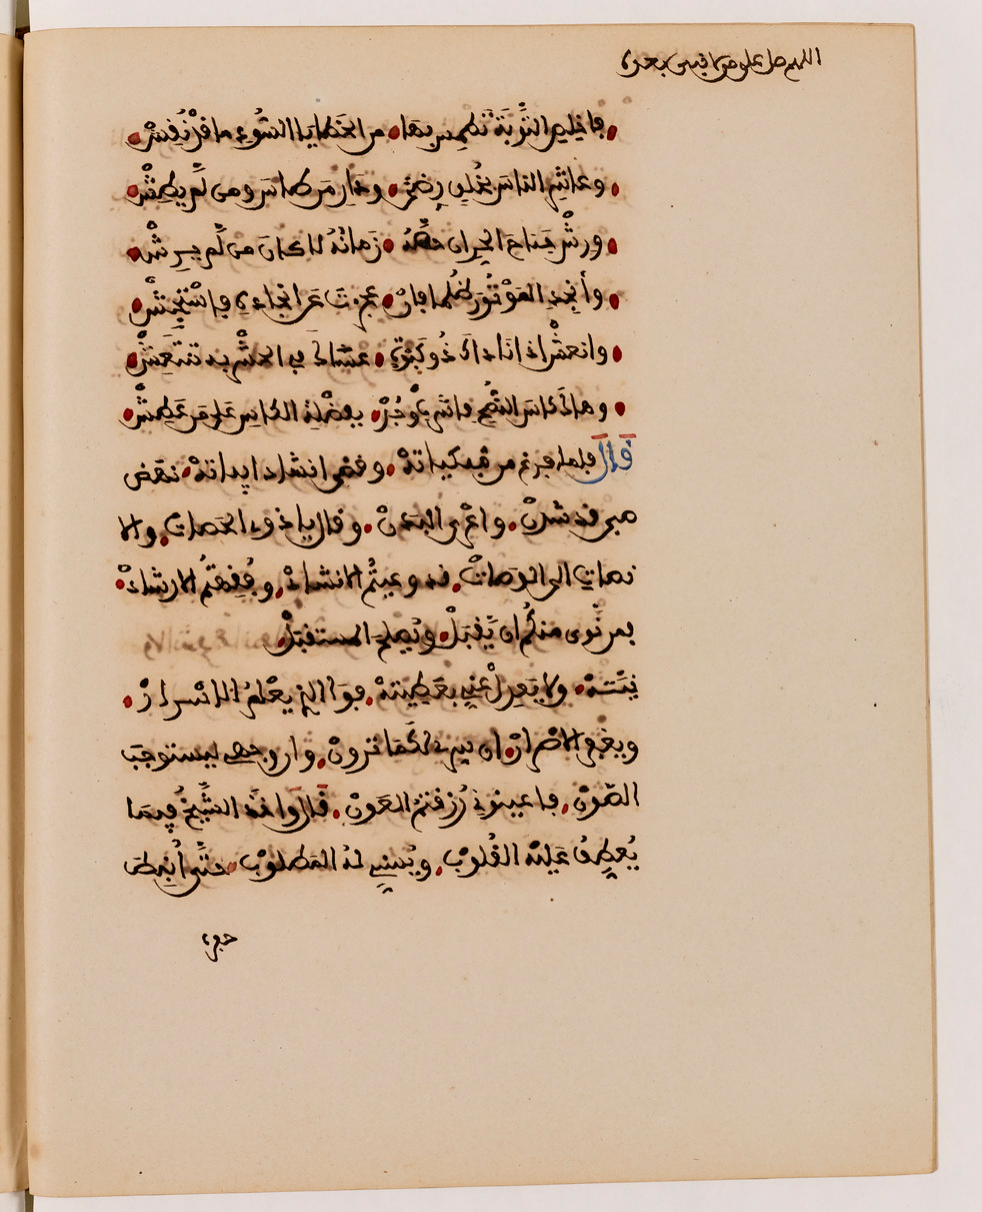 اللهم صل على من لا نبي بعده
فأخلص التوبة تطمس بها من الخطايا السوء ما قد نقش
وعاشر الناس بخلق رضى ودار من طاش ومن لم يطش
ورش جناح الحر ان حصه زمانه لا كان من لم يرش
وأنجد الموتور ظلما فإن عجزت عن انجاده فاستجش
وانعش اذا ناداك ذو كبوة عساك في الحشر به تنتعش
وهاك كاس النصح فاشرب وجد بفضلة الكاس على من عطش
قال فلما فرغ من مبكياته وقضى انشاد ابياته نهض
صبي قد شدن واعرى البدن وقال يا ذوى الحصات والا
نصات الى الوصات قد وعيتم الانشاد وفقهتم الارشاد
بمن نوى منكم ان يقبل ويصلح المستقبل
نيته ولا يعدل عني بعطيته فوالذي يعلم الاسرار
ويغفر الاصرار ان سري لكما ترون وان وجهي ليستوجب
الصون فاعينوني رزقتم العون قال واخذ الشيخ فيما
يعطف عليه القلوب ويسني له المطلوب حتى أنبط
حفره